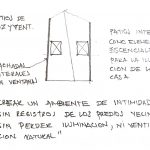 TIOS DE
Z Y VENT.
FACHADAS
LATERALES
VENTANA
PATIOS INTE
COMO ELEME
ESCENCIALE
PARA LA ILU
CION DE LA
CASA.
CREAR UN AMBIENTE DE INTIMIDAD
SIN REGISTROS DE LOS PREDIOS VECIN
SIN PERDER ILUMINACION, NI VENTI
CION NATURAL"